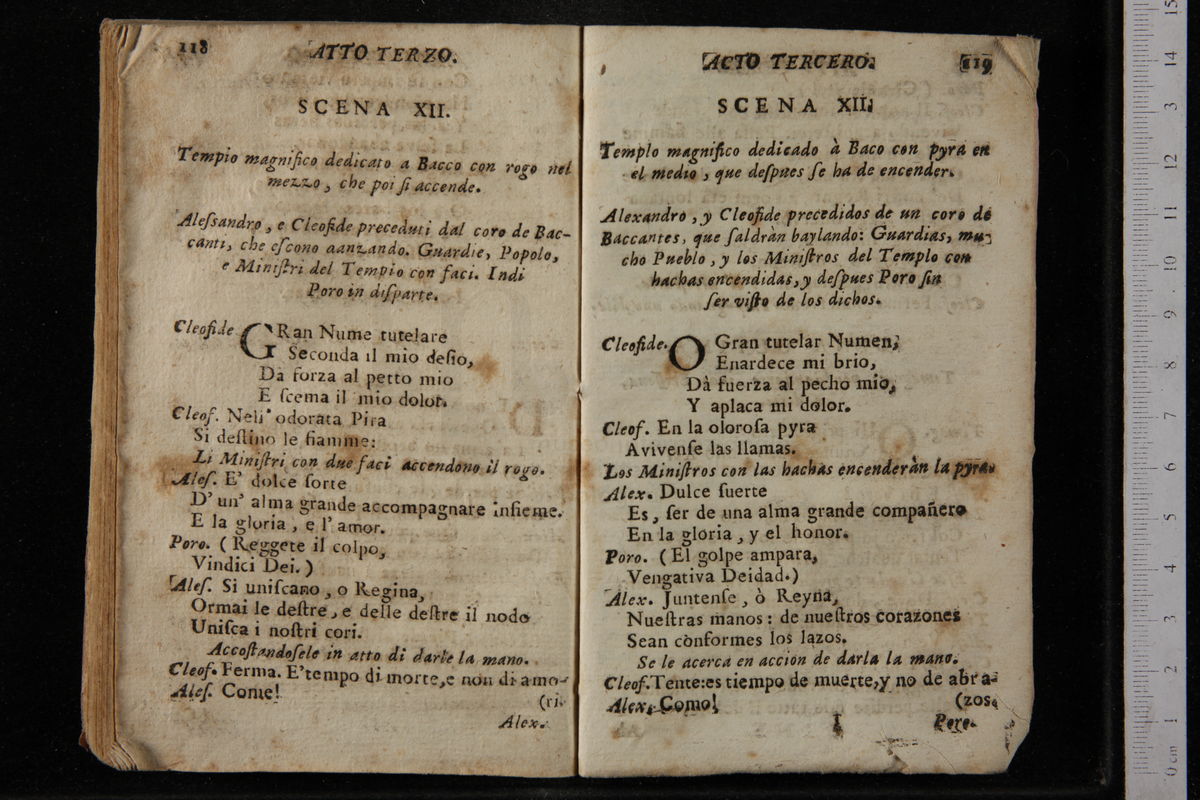 118
ATTO TERZO.
SCENA XII.
Tempio magnifico dedicato a Bacco con rogo nel
mezzo, che poi ſi accende.
Aleſsandro, e Cleofide preceduti dal coro de Bac-
canti, che eſcono aanzando. Guardie, Popolo,
e Miniſtri del Tempio con faci. Indi
Poro in diſparte.
Cleofide GRan Nume tutelare
Seconda il mio deſio,
Dà forza al petto mio
E ſcema il mio dolor.
Cleof. Nell' odorata Pira
Si deſtino le fiamme:
Li Miniſtri con due faci accendono il rogo.
Aleſ. E' dolce ſorte
D' un' alma grande accompagnare inſieme.
E la gloria, e l' amor.
Poro. (Reggete il colpo,
Vindici Dei.)
Aleſ. Si uniſcano, o Regina,
Ormai le deſtre, e delle deſtre il nodo
Uniſca i noſtri cori.
Accoſtandoſele in atto di darle la mano.
Cleof. Ferma. E' tempo di morte, e non di amo-
Aleſ. Come!
(ri.
Alex.
ACTO TERCERO.
119
SCENA XII.
Templo magnifico dedicado à Baco con pyra en
el medio, que deſpues ſe ha de encender.
Alexandro, y Cleofide precedidos de un coro de
Baccantes, que ſaldràn baylando: Guardias, mu-
cho Pueblo, y los Miniſtros del Templo con
hachas encendidas, y deſpues Poro ſin
ſer viſto de los dichos.
Cleofide. O Gran tutelar Numen,
Enardece mi brio,
Dà fuerza al pecho mio,
Y aplaca mi dolor.
Cleof. En la oloroſa pyra
Avivenſe las llamas.
Los Miniſtros con las hachas encenderàn la pyra.
Alex. Dulce ſuerte
Es, ſer de una alma grande compañero
En la gloria, y el honor.
Poro. (El golpe ampara,
Vengativa Deidad.)
Alex. Juntenſe, ò Reyna,
Nueſtras manos: de nueſtros corazones
Sean cònformes los lazos.
Se le acerca en accion de darla la mano.
Cleof. Tente: es tiempo de muerte, y no de abra-
Alex. Como!
(zos.
I
Pere.